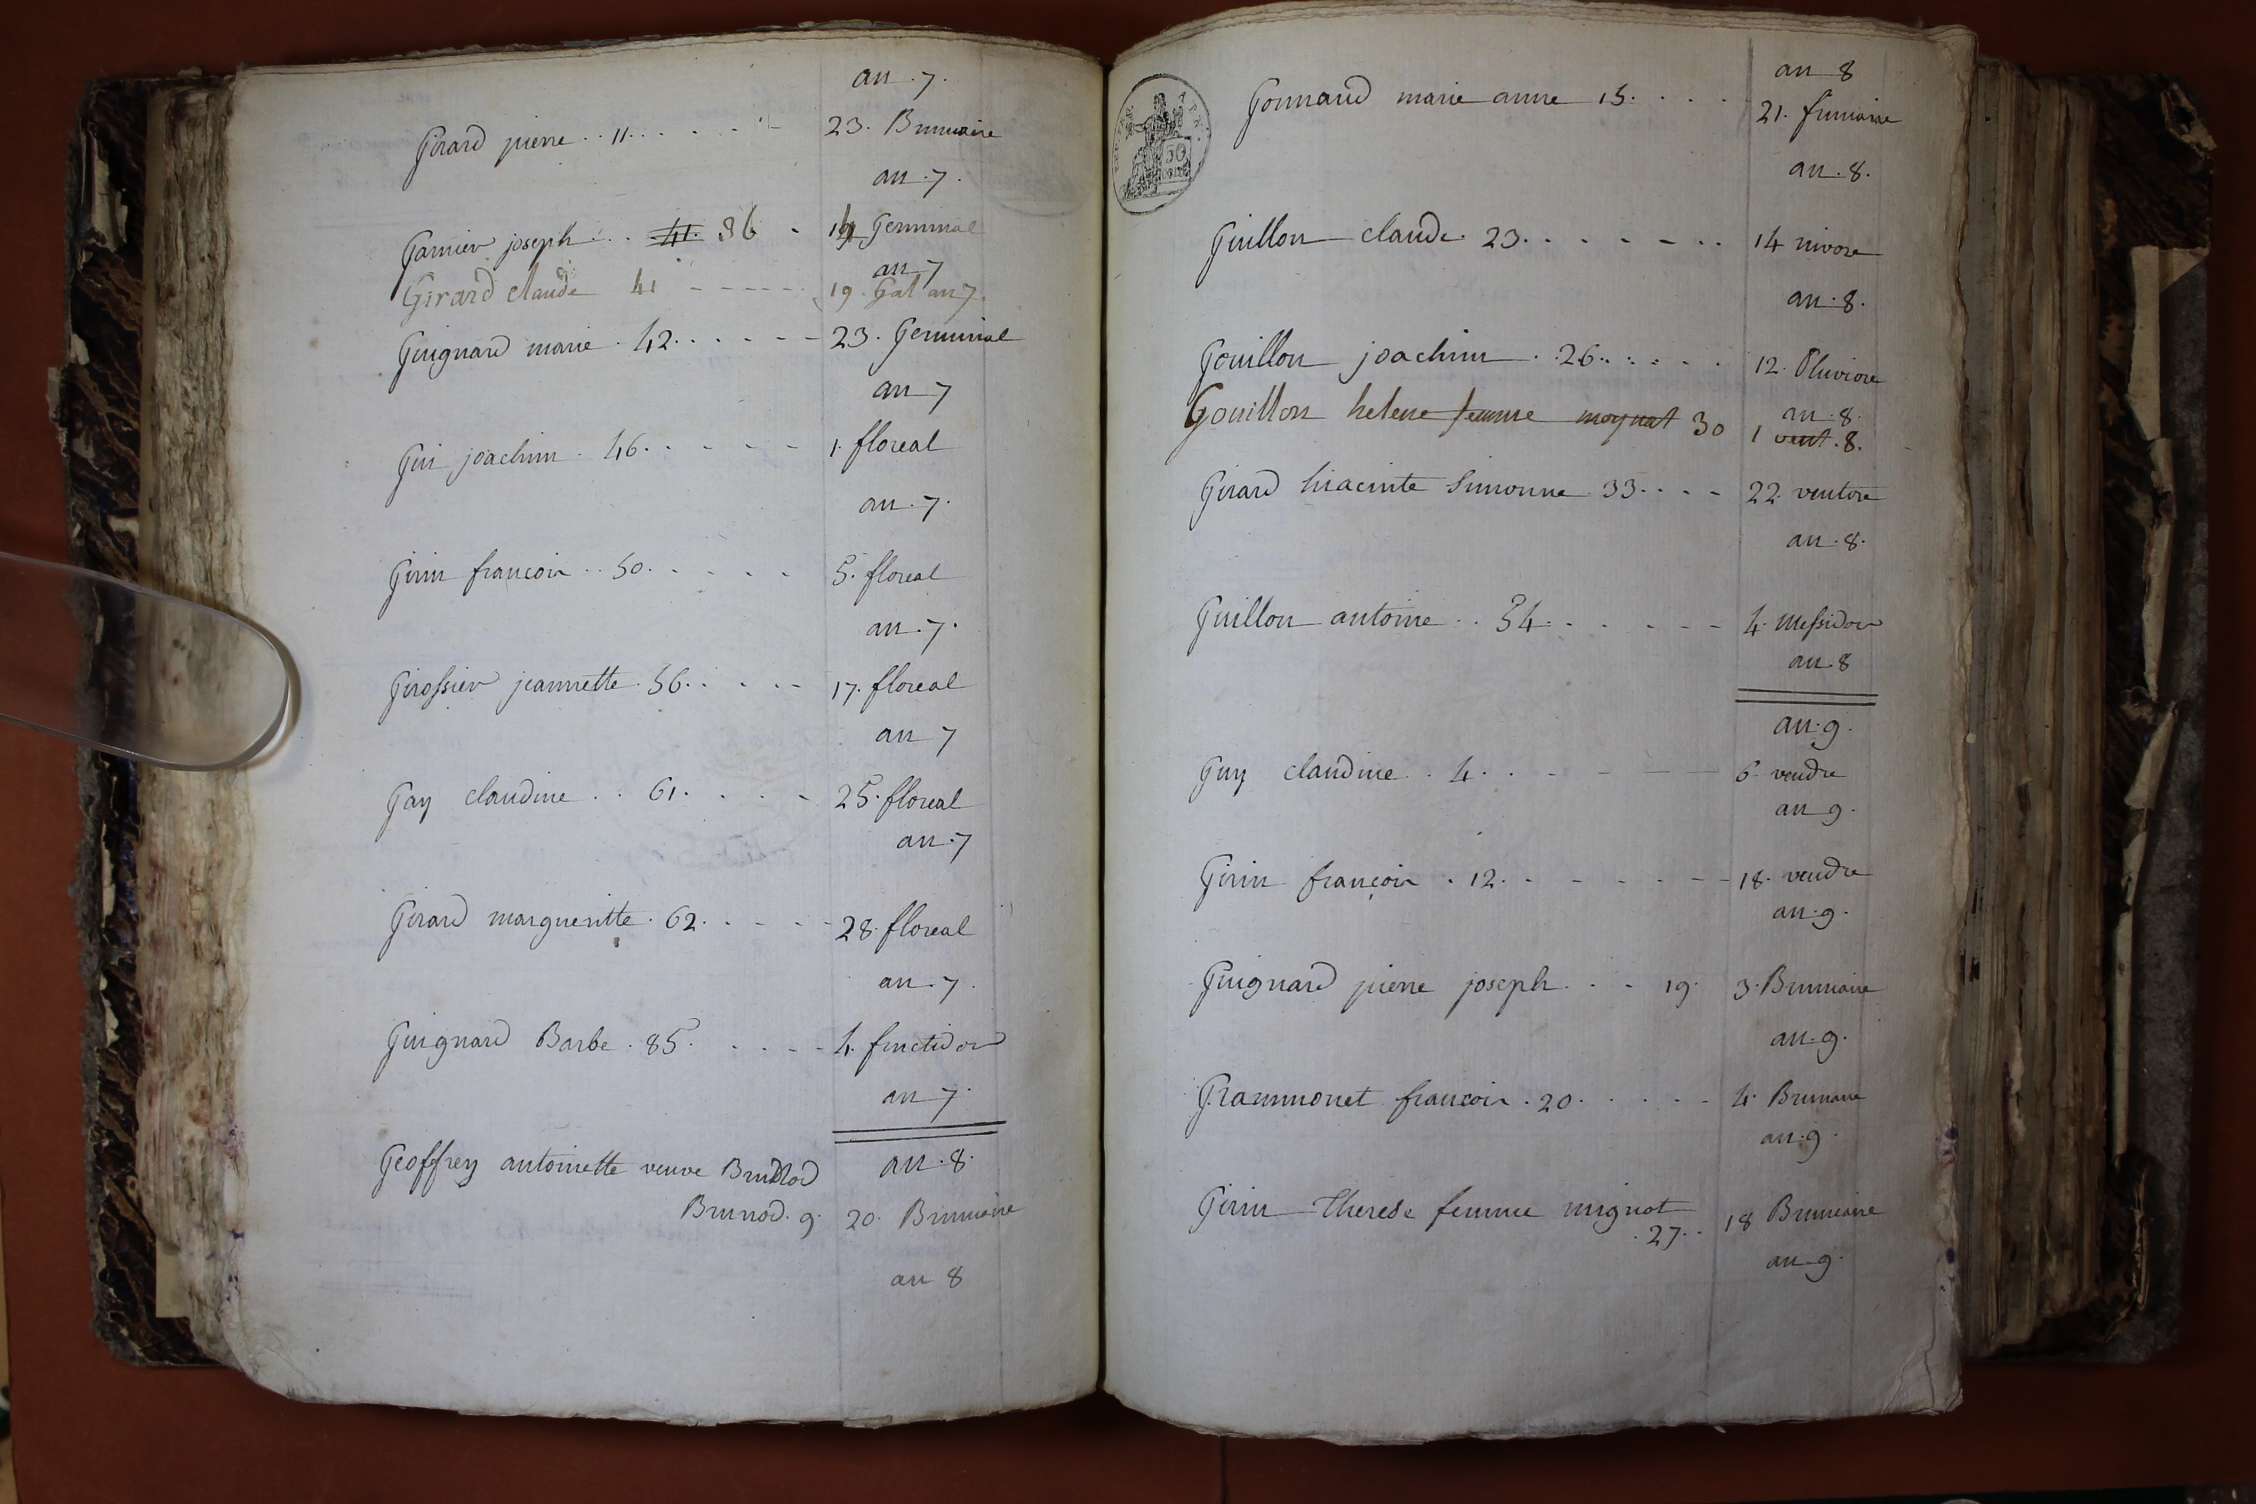 an . 7 .
Girard pierre . . 11 . . . . . . . 23 . Brumaire
an . 7 .
Garnier joseph . . . 41 . 36 . 14 Germinal
an 7
Girard claude 41 - - - - - - 19 . Gal an 7 .
Guignard marie . 42 . . . . . - - 23 . Germinal
an 7
Gui joachim . 46 . . . . - - 1 . floreal
an . 7 .
Girin francois . . 50 . . . . . 5 . floreal
an . 7 .
Girossier jeannette . 56 . . . . - - 17 . floreal
an 7
Gay claudine . . 61 . . . . - 25 . floreal
an . 7
Girard margueritte . 62 . . . . - - 28 . floreal
an . 7 .
Guignard Barbe . 85 . . . . - - 4 . fructidor
an 7 .
an . 8 .
Geoffrey antoinette veuve
Brunod . 9 . 20 . Brumaire
an 8
an 8
Gonnard marie anne 15 . . . . 21 . frimaire
an . 8 .
Guillon claude . 23 . . . . - - . . 14 nivose
an . 8 .
Gouillon joachim . . 26 . . . . . . 12 . Pluviose
an . 8 .
Gouillon helene femme moynat 30 1 vent . 8 .
Girard hiacinte Simonne 33 . . . - 22 . ventose
an . 8 .
Guillon antoine . . 54 . . . . . - - 4 . Messidor
an . 8
an . 9 .
Guy claudine . . 4 . . - - - - 6 . vendre
an 9 .
Girin françois . 12 . - - - - - - 18 . vendre
an . 9 .
Guignard pierre joseph . . - 19 . 3 . Brumaire
an . 9 .
Grammonet francois . 20 . . . . . - 4 . Brumaire
an . 9 .
Girin Therese femme mignot
. 27 . . 18 Brumaire
an . 9 .